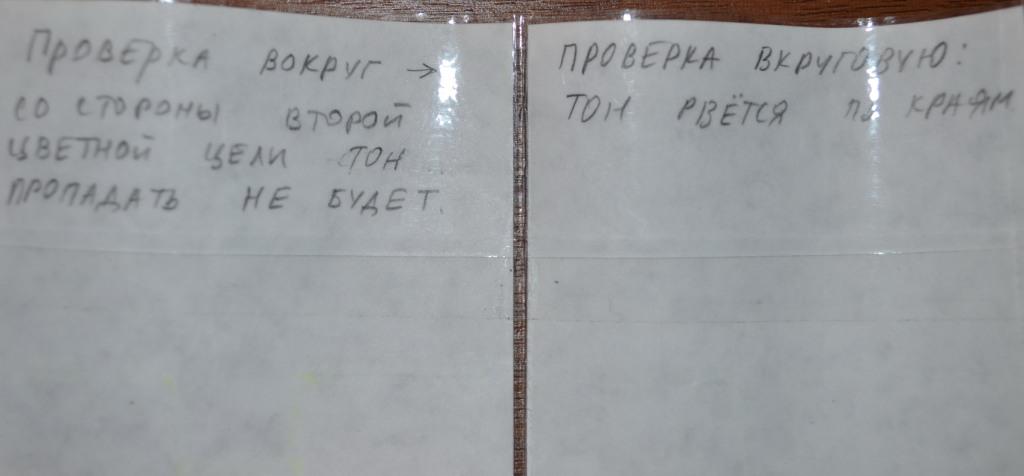 ПРОВЕРКА ВОКРУГ →
СО СТОРОНЫ ВТОРОЙ
ЦВЕТНОЙ ЦЕЛИ ТОН
ПРОПАДАТЬ НЕ БУДЕТ.
ПРОВЕРКА ВКРУГОВУЮ:
ТОН РВЁТСЯ ПО КРАЯМ